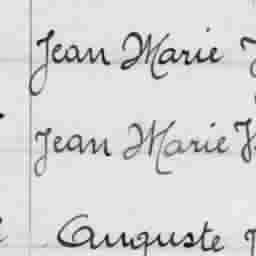 Jean Marie
Jean Marie
Auguste